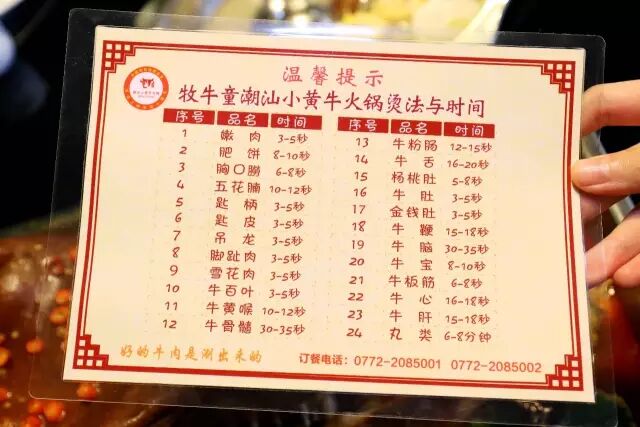 温馨提示
牧牛童潮汕小黄牛火锅烫法与时间
序号 品名 时间
1 嫩肉 3-5秒
2 肥饼 8-10秒
3 胸口朥 6-8秒
4 五花腩 10-12秒
5 匙柄 3-5秒
6 匙皮 3-5秒
7 吊龙 3-5秒
8 脚趾肉 3-5秒
9 雪花肉 3-5秒
10 牛百叶 3-5秒
11 牛黄喉 10-12秒
12 牛骨髓 30-35秒
序号 品名 时间
13 牛粉肠 12-15秒
14 牛舌 16-20秒
15 杨桃肚 5-8秒
16 牛肚 3-5秒
17 金钱肚 3-5秒
18 牛鞭 15-18秒
19 牛脑 30-35秒
20 牛宝 8-10秒
21 牛板筋 6-8秒
22 牛心 16-18秒
23 牛肝 15-18秒
24 丸类 6-8分钟
好的牛肉是涮出来的
订餐电话：0772-2085001 0772-2085002